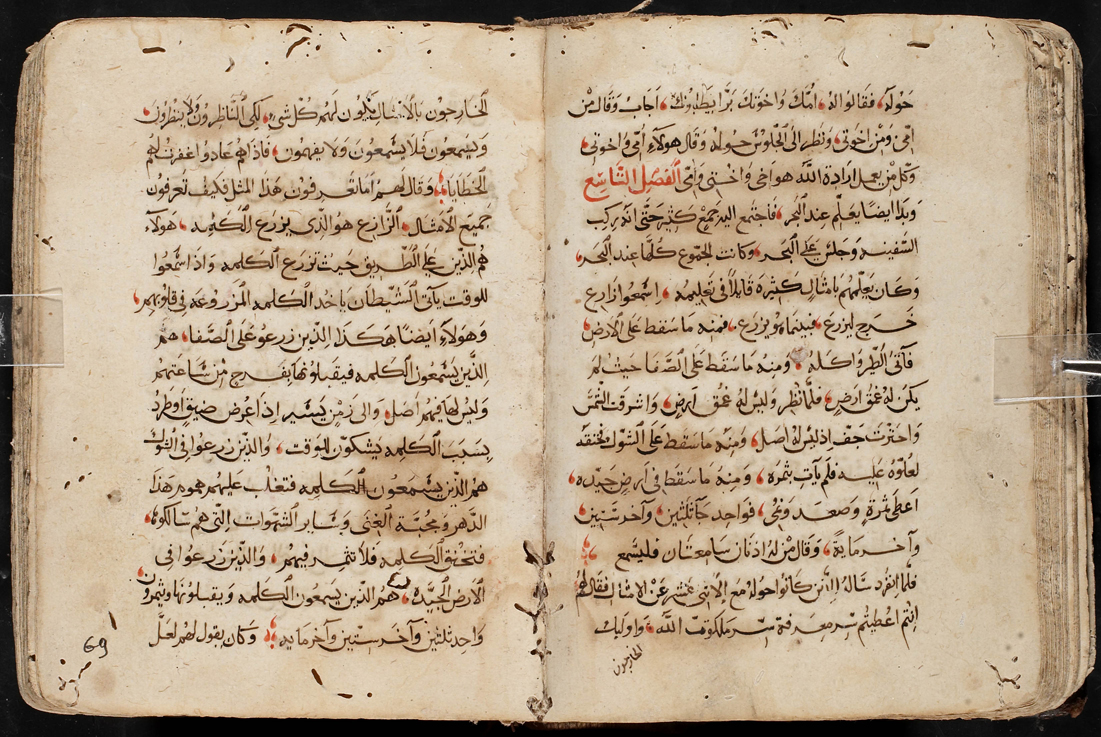 حوله، فقالوا له، امك واخوتك برا يطلبونك، اجاب وقال من
امي ومن اخوتي، ونظر الى الجلوس حوله وقال هولاء امي واخوتي،
وكل من يعمل ارادة الله هو اخي واختي وامي الفصل التاسع
وبدا ايضا يعلم عند البحر، فاجتمع اليه جمع كثير حتى انه ركب
السفينه وجلس على البحر، وكانت الجموع كلها عند البحر،
وكان يعلمهم بامثال كثيرة قايلا في تعليمه، اسمعوا زارع
خرج ليزرع، فبينما هو يزرع، فمنه ما سقط على الارض،
فاتى الطير واكله، ومنه ما سقط على الصفا حيث لم
يكن له عمق ارض، فلما نظر وليس له عمق ارض، واشرقت الشمس
واحترت جف اذ ليس له اصل، ومنه ما سقط على الشوك فخنقه
لعلوه عليه فلم يات بثمره، ومنه ما سقط في ارض جيده،
اعطى ثمرة وصعد ونمى، فواحد جا بثلثين، واخر ستين،
واخر مايه، وقال من له اذنان سامعتان فليسمع
فلما انفرد ساله الذين كانوا حوله مع الاثني عشر عن الامثال فقال لهم
انتم اعطيتم سر معرفة سر ملكوت الله، واوليك
الخارجون
الخارجون بالامثال يكون لهم كل شي، لكي الناظرون ولا ينظرون،
ويسمعون فلا يسمعون ولا يفهمون، فاذا هم عادوا اغفرت لهم
الخطايا، وقال لهم اما تعرفون هذا المثل فكيف تعرفون
جميع الامثال، الزارع هو الذي يزرع الكلمه، هولاء
هم الذين على الطريق حيث تزرع الكلمه واذا سمعوا
للوقت ياتي الشيطان ياخد الكلمه المزروعه في قلوبهم،
وهولاء ايضا هكذا الذين زرعوا على الصفا، هم
الذين يسمعون الكلمه فيقبلونها بفرح من ساعتهم
وليس لها فيهم اصل، والى زمن يسير اذا عرض ضيق او طرد
بسبب الكلمه يشكون للوقت، والذين زرعوا في الشوك
هم الذين يسمعون الكلمه فتغلب عليهم هموم هذا
الدهر ومحبة الغنى وساير الشهوات التي هم سالكوها،
فتخنق الكلمه فلا تثمر فيهم، والذين زرعوا في
الارض الجيده، هم الذين يسمعون الكلمه ويقبلونها ويثمرون،
واحد ثلثين واخر ستين واخر مايه، وكان يقول لهم لعل
69